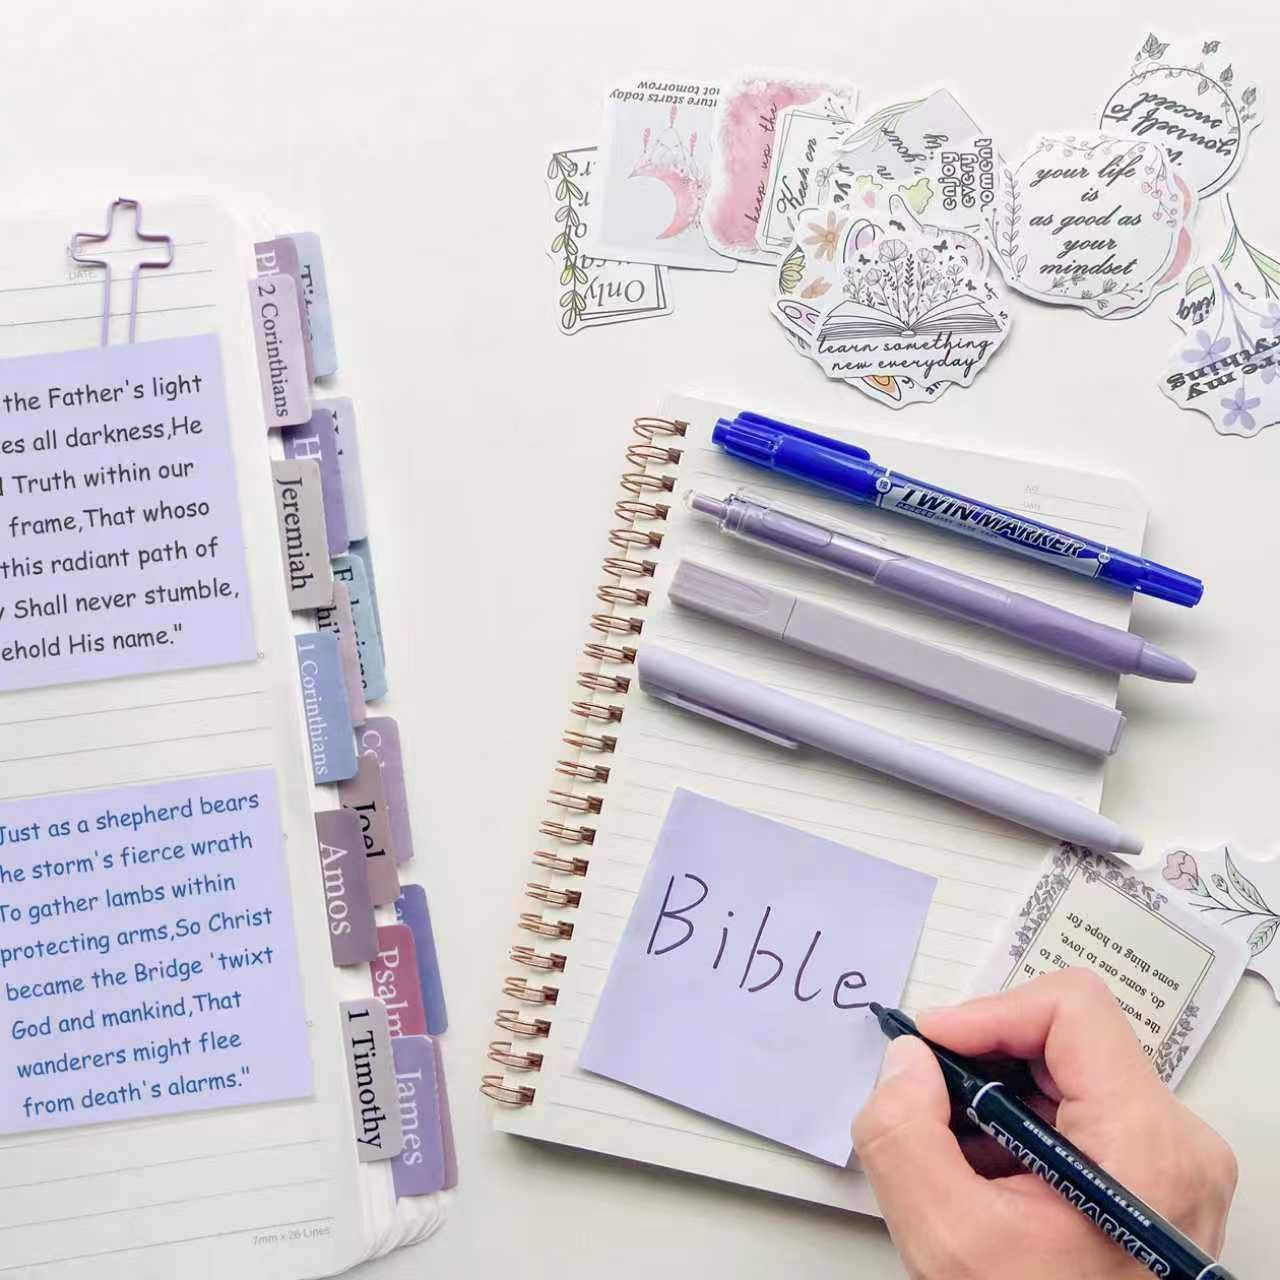 the Father's light
es all darkness,He
Truth within our
frame,That whoso
this radiant path of
Shall never stumble,
ehold His name."
Just as a shepherd bears
he storm's fierce wrath
To gather lambs within
protecting arms,So Christ
became the Bridge 'twixt
God and mankind,That
wanderers might flee
from death's alarms."
7mm x 26 Lines
2 Corinthians
Jeremiah
1 Corinthians
Joel
Amos
Psalm
1 Timothy
James
ture starts today
not tomorrow
keep up the
Only
enjoy
every
moment
your life
is
as good as
your
mindset
learn something
new everyday
yourself to
succeed
TWIN MARKER
Bible
do, some one to love,
some thing to hope for
TWIN MARKER